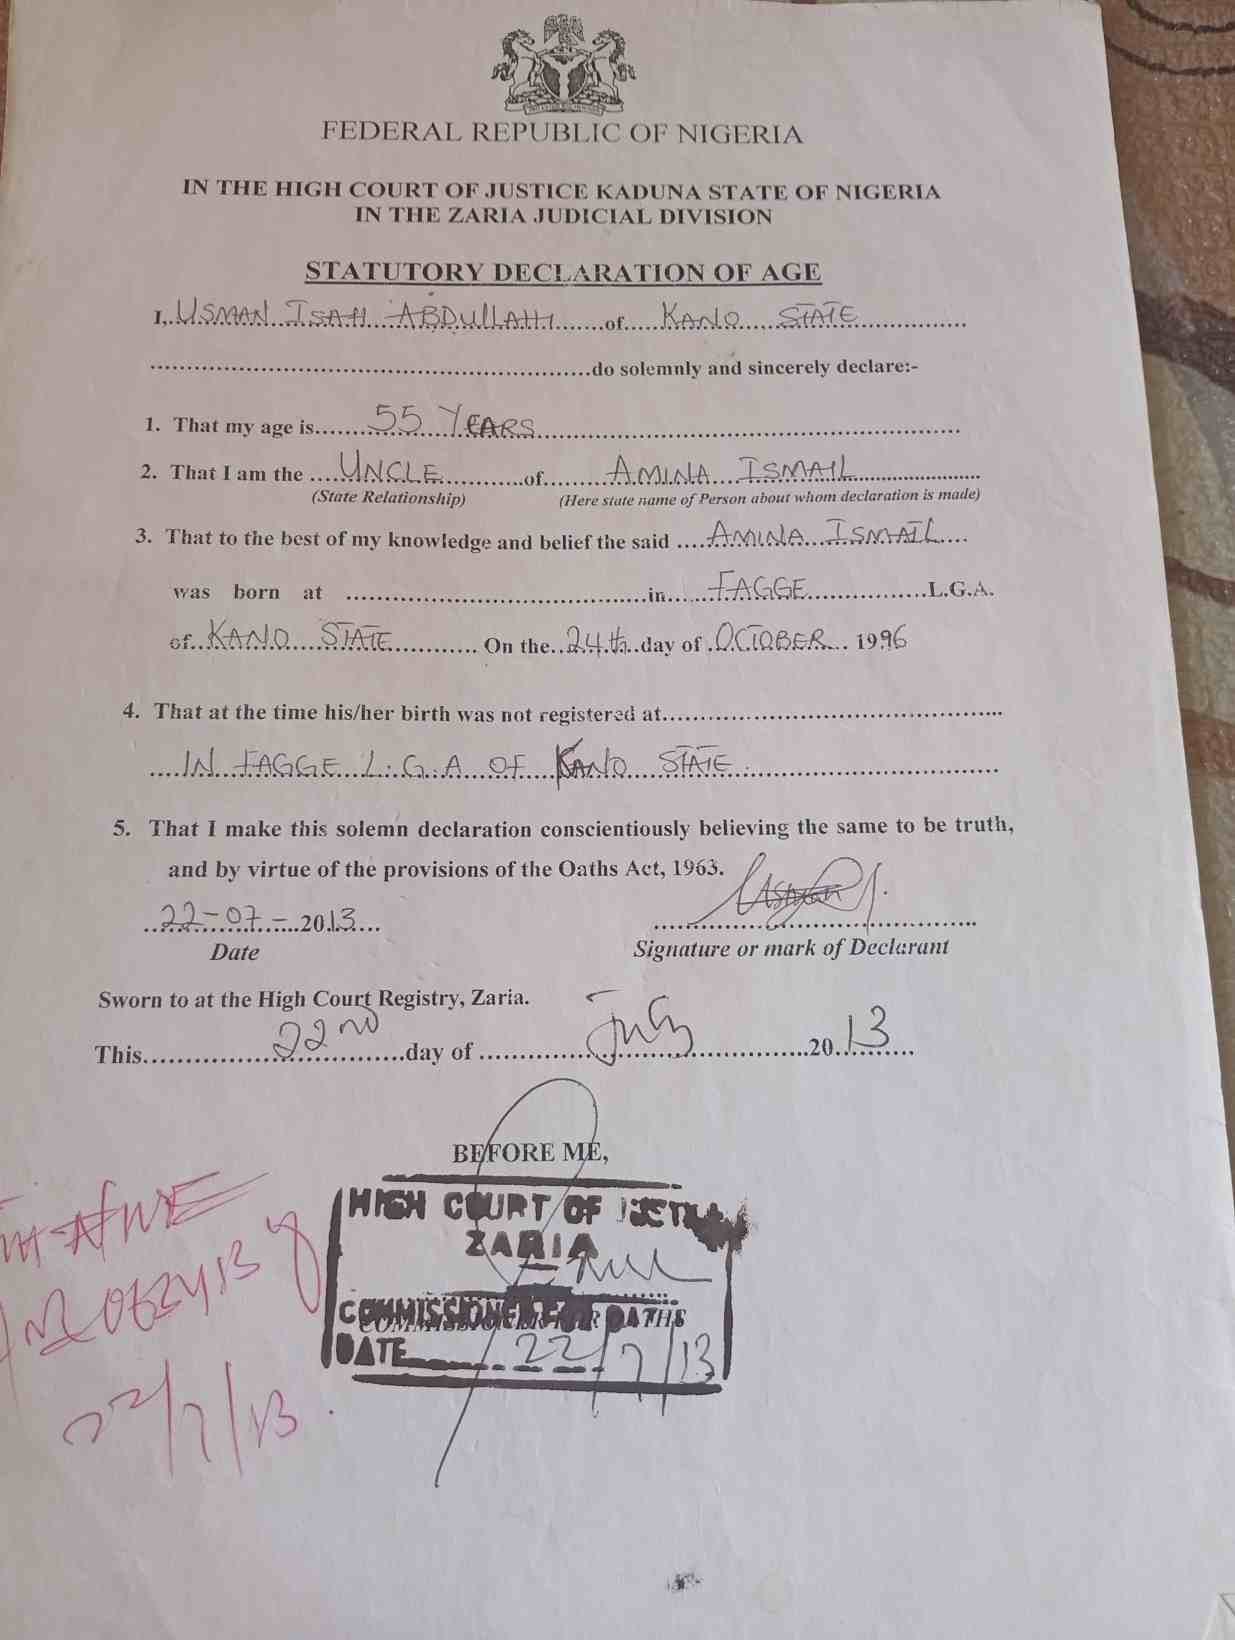 FEDERAL REPUBLIC OF NIGERIA
IN THE HIGH COURT OF JUSTICE KADUNA STATE OF NIGERIA
IN THE ZARIA JUDICIAL DIVISION
STATUTORY DECLARATION OF AGE
I, USMAN ISAH ABDULLAHI of KANO STATE
do solemnly and sincerely declare:-
1. That my age is 55 YEARS
2. That I am the UNCLE of AMINA ISMAIL
(State Relationship) (Here state name of Person about whom declaration is made)
3. That to the best of my knowledge and belief the said AMINA ISMAIL
was born at in FAGGE L.G.A.
of KANO STATE On the 24th day of OCTOBER 1996
4. That at the time his/her birth was not registered at
IN FAGGE L.G.A OF KANO STATE.
5. That I make this solemn declaration conscientiously believing the same to be truth,
and by virtue of the provisions of the Oaths Act, 1963.
22-07-2013
Date Signature or mark of Declarant
Sworn to at the High Court Registry, Zaria.
This 22nd day of July 2013
BEFORE ME,
HIGH COURT OF
ZARIA
COMMISSIONER FOR OATHS
DATE 22/7/13
22/7/13.